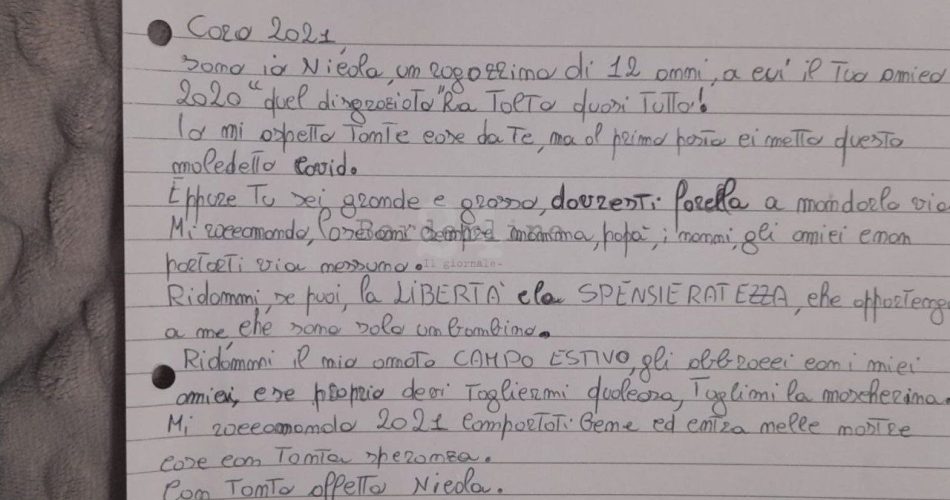 Caro 2021,
sono io Nicola, un ragazzino di 12 anni, a cui il Tuo amico
2020 "quel disgraziato" ha Tolto quasi Tutto!
Io mi aspetto Tante cose da Te, ma al primo posto ci metto questo
maledetto covid.
Eppure Tu sei grande e grosso, dovresti farcela a mandarlo via
Mi raccomando, mamma, papà, i nonni, gli amici e non
portarti via nessuno.
Il giornale-
Ridammi, se puoi, la LIBERTÀ e la SPENSIERATEZZA, che apparteng
a me, che sono solo un bambino.
Ridammi il mio amato CAMPO ESTIVO, gli abbracci con i miei
amici, e se proprio devi Togliermi qualcosa, Toglimi la mascherina.
Mi raccomando 2021 comportati bene ed entra nelle nostre
case con Tanta speranza.
Con Tanto affetto Nicola.